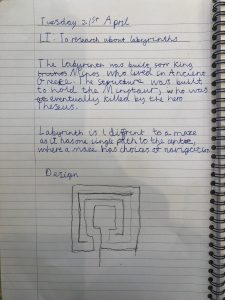 Tuesday 21st April
LI: To research about labyrinths
The Labyrinth was built for King
Minos who lived in Ancient
Greece. The structure was built
to hold the Minotaur, who was
eventually killed by the hero
Theseus.
Labyrinth is diffrent to a maze
as it has one single path to the centre,
where a maze has choices of navigation
Design